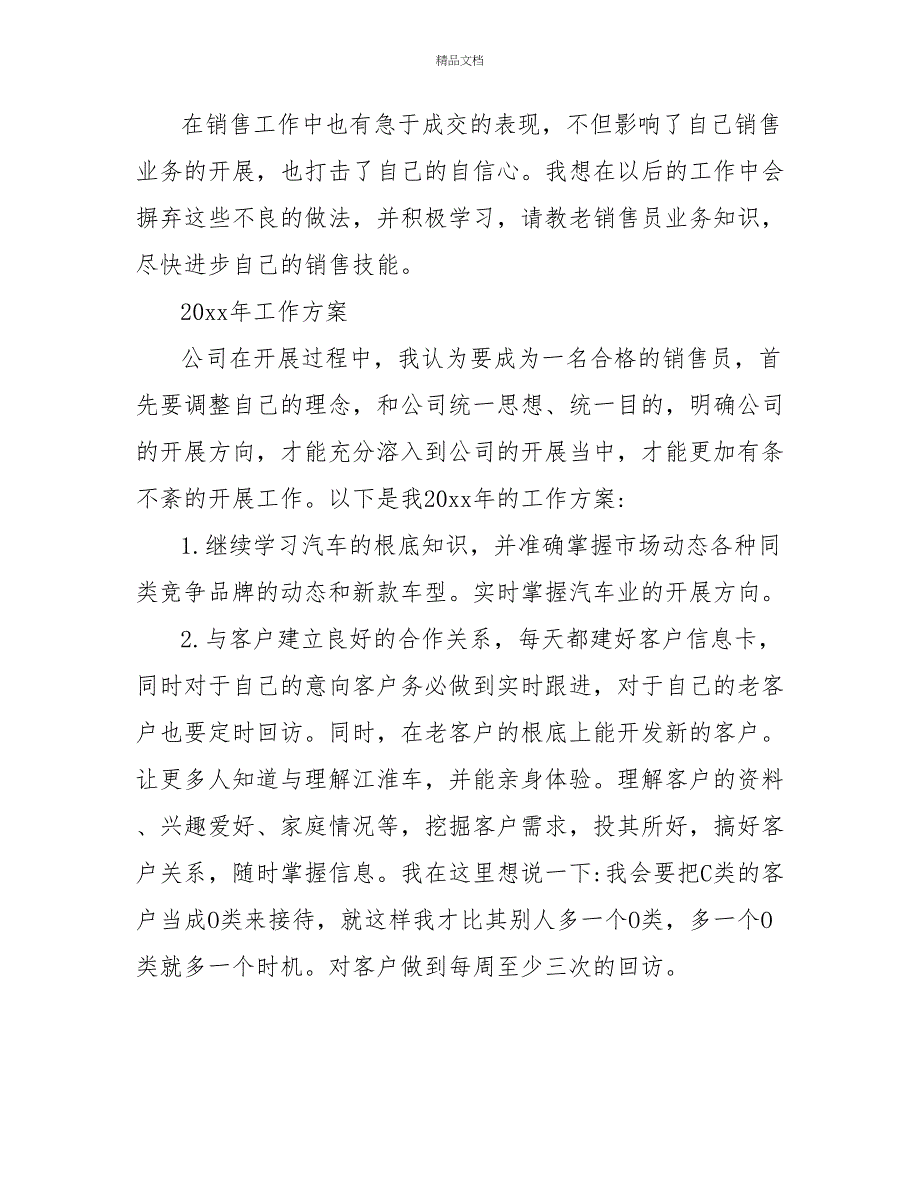 精品文档
在销售工作中也有急于成交的表现，不但影响了自己销售
业务的开展，也打击了自己的自信心。我想在以后的工作中会
摒弃这些不良的做法，并积极学习，请教老销售员业务知识，
尽快进步自己的销售技能。
20xx年工作方案
公司在开展过程中，我认为要成为一名合格的销售员，首
先要调整自己的理念，和公司统一思想、统一目的，明确公司
的开展方向，才能充分溶入到公司的开展当中，才能更加有条
不紊的开展工作。以下是我20xx年的工作方案：
1.继续学习汽车的根底知识，并准确掌握市场动态各种同
类竞争品牌的动态和新款车型。实时掌握汽车业的开展方向。
2.与客户建立良好的合作关系，每天都建好客户信息卡，
同时对于自己的意向客户务必做到实时跟进，对于自己的老客
户也要定时回访。同时，在老客户的根底上能开发新的客户。
让更多人知道与理解江淮车，并能亲身体验。理解客户的资料
、兴趣爱好、家庭情况等，挖掘客户需求，投其所好，搞好客
户关系，随时掌握信息。我在这里想说一下：我会要把C类的客
户当成O类来接待，就这样我才比其别人多一个O类，多一个O
类就多一个时机。对客户做到每周至少三次的回访。